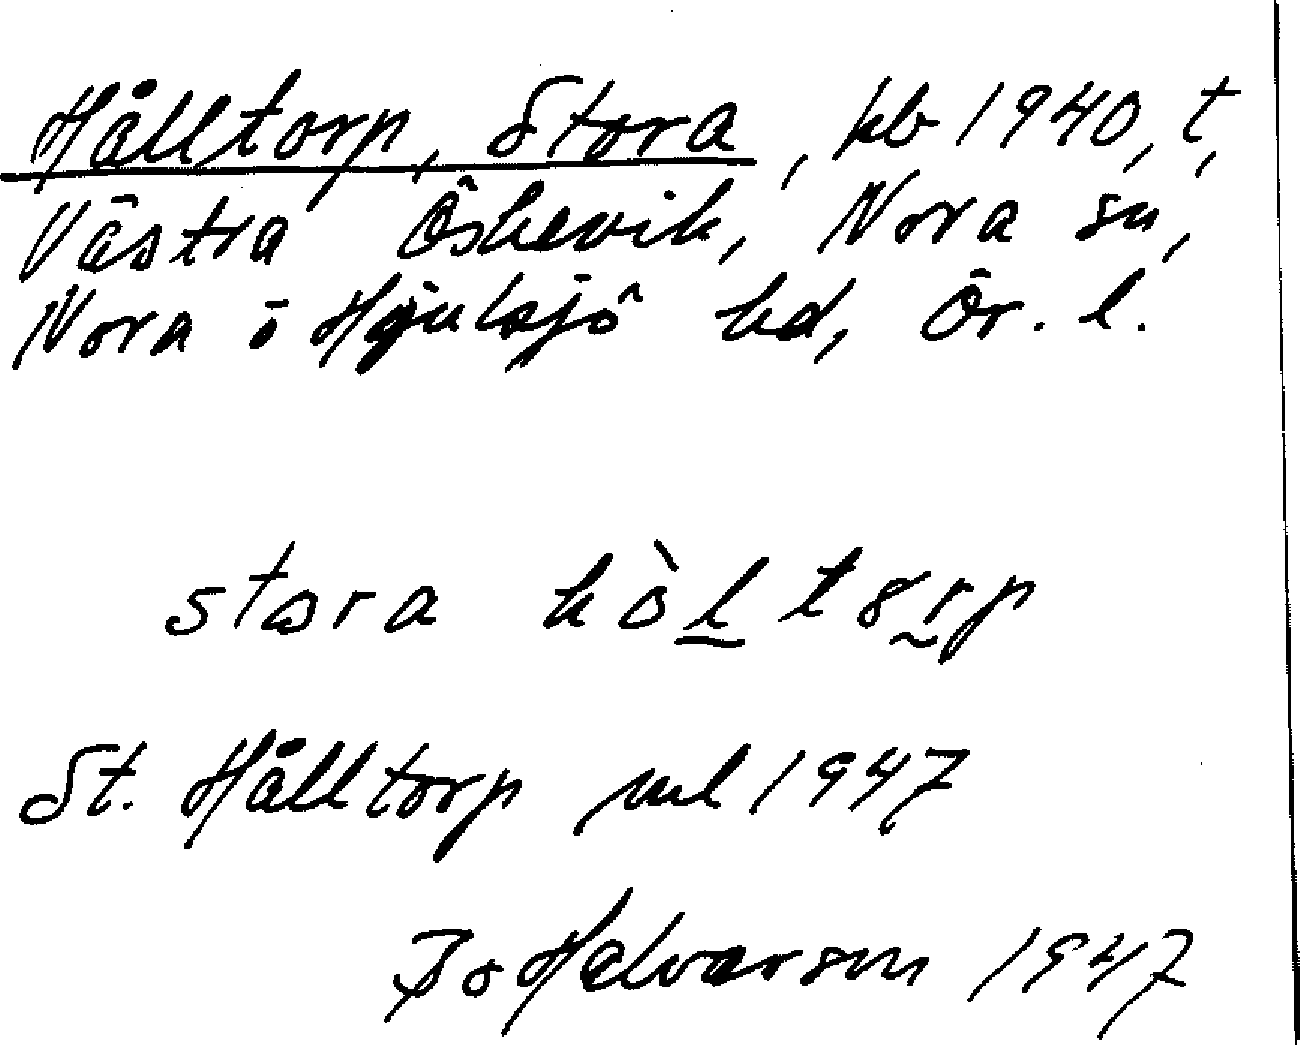 Hålltorp, Stora, kb 1940, t,
Västra Öskevik, Nora sn,
Nora o Hjulsjö bd, Ör. l.
stora hòltorp
St. Hålltorp ml 1947
Bo Halvarson 1947